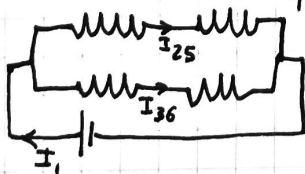 I25
I36
I1